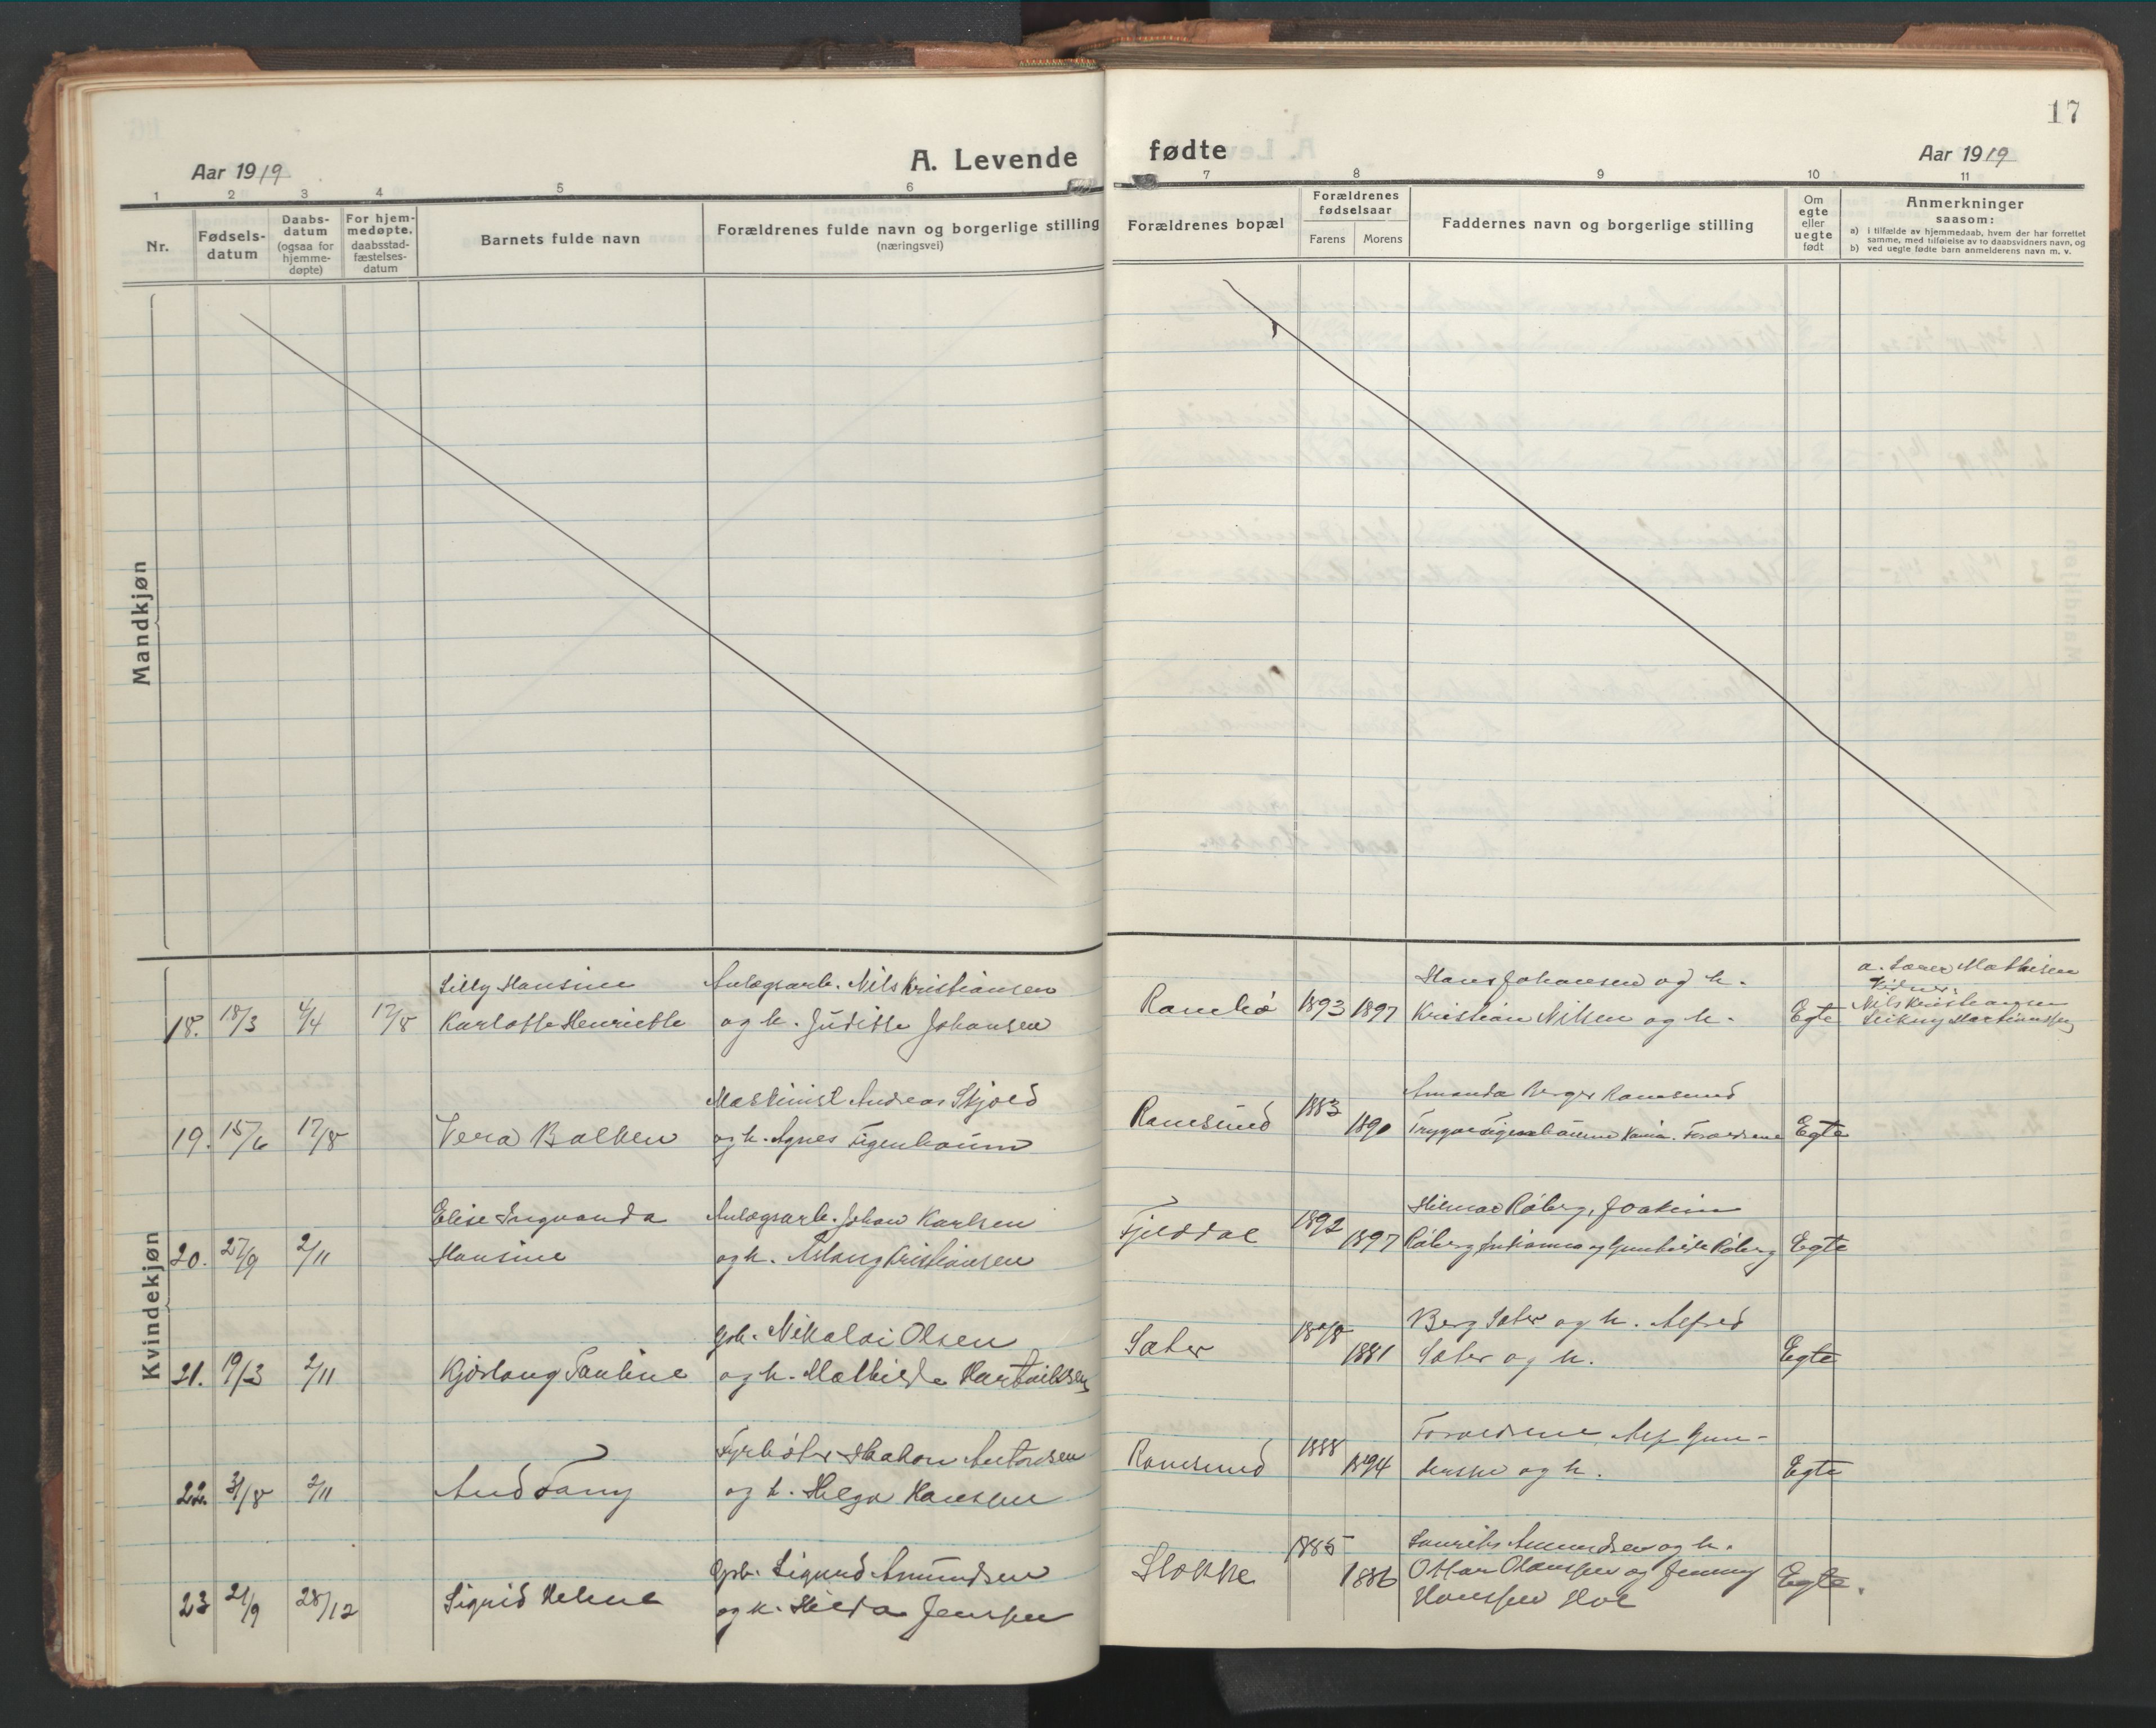 17
Aar 1919
A. Levende
fødte
Aar 1919
1 2 3 4 5 6 7 8 9 10 11
Nr.
Fødsels-
datum
Daabs-
datum
(ogsaa for
hjemme-
døpte)
For hjem-
medøpte.
daabsstad-
fæstelses-
datum
Barnets fulde navn
Forældrenes fulde navn og borgerlige stilling
(næringsvei)
Forældrenes bopæl
Forældrenes
fødselsaar
Farens Morens
Faddernes navn og borgerlige stilling
Om
egte
eller
uegte
født
Anmerkninger
saasom:
a) i tilfælde av hjemmedaab, hvem der har forrettet
samme, med tilføielse av to daabsvidners navn, og
b) ved uegte fødte barn anmelderens navn m. v.
Mandkjøn
Kvindekjøn
Lilly Hansine Anlægsarb. Nils Kristiansen Hans Johansen og h. a. Lærer Mathisen
18. 18/3 4/4 17/8 Karlotte Henriette og h. Juditte Johansen 1893 1897 Kristian Nilsen og h. Egte Nils Kristiansen
Maskinist Andreas Skjold Amanda Berger Ramsund
19. 15/6 17/8 Vera Balken og h. Agnes Figenbaum Ramsund 1883 1890 Trygve Figenbaum Forældrene Egte
Elise Ingvanda Anlægsarb. Johan Karlsen Hilmar Røberg, Joakim
20. 27/9 2/11 Hansine og h. Aslaug Kristiansen Fjelddal 1892 1897 Røberg og Gunhilde Røberg Egte
Gbr. Nikolai Olsen Berg Sæter og h. Alfred
21. 19/3 2/11 Kjørlaug Pauline og h. Mathilde Hartviksen Sæter 1878 1881 Sæter og h. Egte
Fyrbøter Haakon Antonsen Forældrene, Alf Gun-
22. 31/8 2/11 Aud Fany og h. Helga Hanssen Ramsund 1888 1894 og h. Egte
Gbr. Sigurd Amundsen Laurits Amundsen og h.
23 21/9 28/12 Sigrid Helene og h. Hilda Jenssen Stokke 1885 1886 Ottar Hanssen og Jenny Egte.
Hanssen Hol